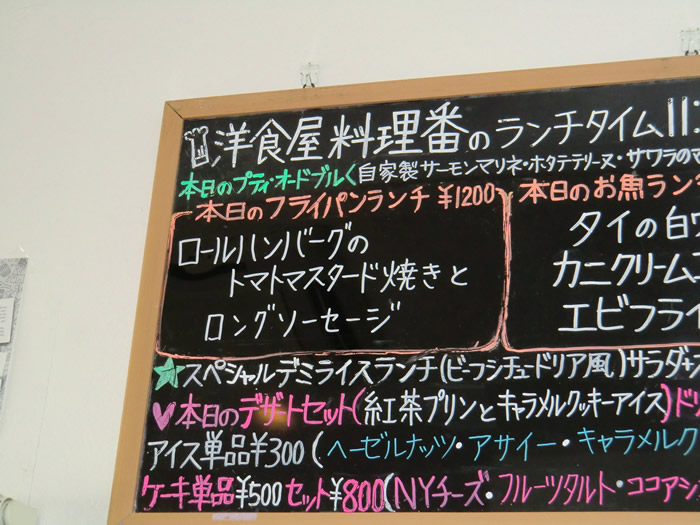 洋食屋 料理番のランチタイム 11
本日のプティ・オードブル〈自家製サーモンマリネ・ホタテテリーヌ・サワラのマ
本日のフライパンランチ ¥1200
ロールハンバーグの
トマトマスタード焼きと
ロングソーセージ
本日のお魚ラン
タイの白ワ
カニクリーム
エビフライ
★スペシャルデミライスランチ(ビーフシチュードリア風)サラダ
♥本日のデザートセット(紅茶プリンとキャラメルクッキーアイス)ドリ
アイス単品¥300(ヘーゼルナッツ・アサイー・キャラメルク
ケーキ単品¥500 セット¥800(NYチーズ・フルーツタルト・ココアシ